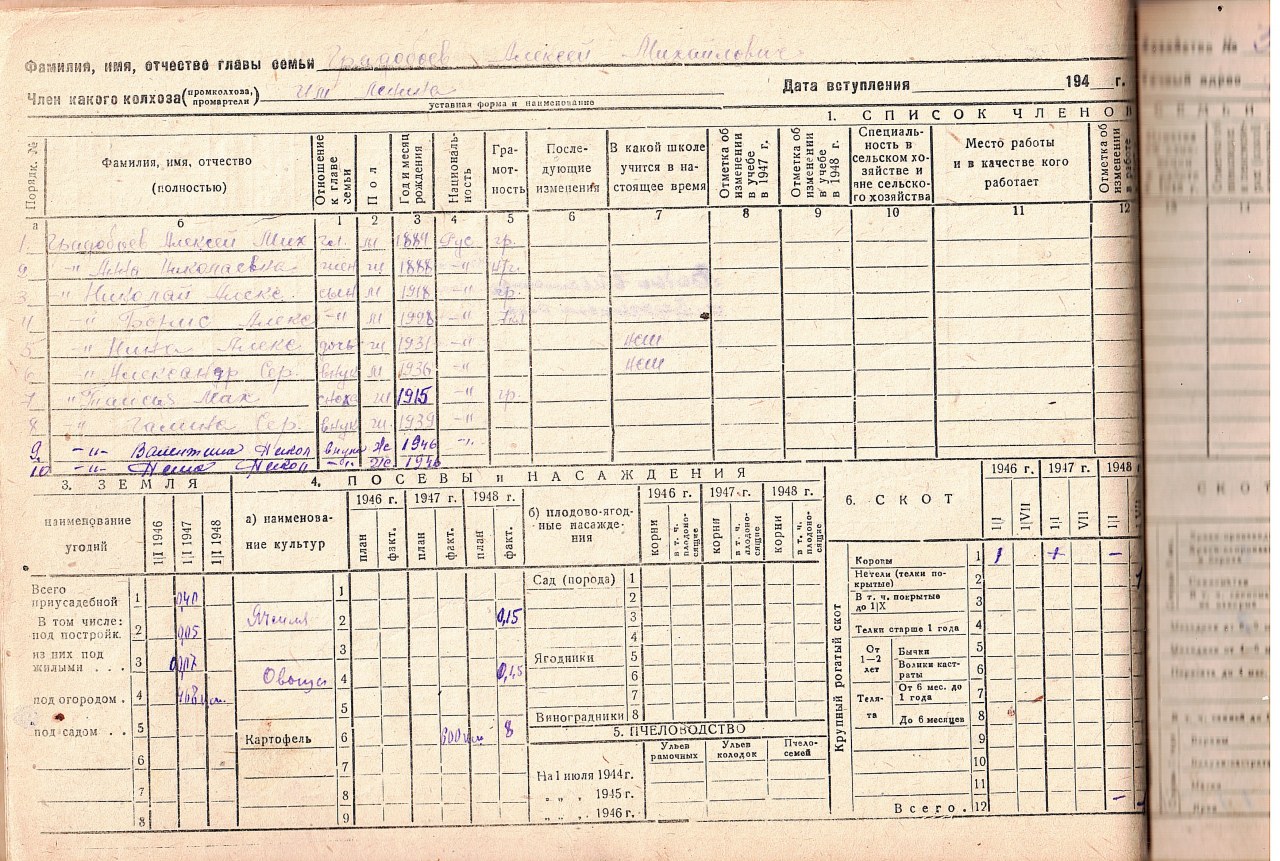 Фамилия, имя, отчество главы семьи Градобоев Алексей Михайлович
Член какого колхоза (промколхоза, промартели) им Ленина
уставная форма и наименование
Дата вступления 194 г.
1. СПИСОК ЧЛЕНОВ
Порядк. № Фамилия, имя, отчество (полностью) Отношение к главе семьи Пол Год и месяц рождения Националь-ность Гра-мот-ность После-дующие изменения В какой школе учится в на-стоящее время Отметка об изменении в учебе в 1947 г. Отметка об изменении в учебе в 1948 г. Специаль-ность в сельском хо-зяйстве и вне сельско-го хозяйства Место работы и в качестве кого работает Отметка об изменении
а б 1 2 3 4 5 6 7 8 9 10 11 12
1. Градобоев Алексей Мих гл. м 1884 Рус гр.
2 -"- Анна Николаевна жен ж 1888 -"- н/г.
3 " Николай Алекс. сын м 1918 -"- гр.
4 -"- Борис Алекс -"- м 1928 -"- 7кл
5 -"- Нина Алекс дочь ж 1931 -"- нсш
6 -"- Александр Сер. внук м 1936 -"- нсш
7 " Таисья Мах сноха ж 1915 -"- гр.
8 -"- Галина Сер. внук ж. 1939 -"-
9. -"- Валентина Никол внук ж 1946 -"-
10 -"- Нина Никол -"- ж 1946
3. ЗЕМЛЯ
наименование угодий 1|I 1946 1|I 1947 1|I 1948
Всего приусадебной 1 040
В том числе: под постройк. 2 005
из них под жилыми . . . 3
под огородом . 4
под садом . . 5
6
7
8
4. ПОСЕВЫ и НАСАЖДЕНИЯ
а) наименова-ние культур 1946 г. 1947 г. 1948 г.
план факт. план факт. план факт.
1
Ячмень 2 0,15
3
Овощи 4 0,15
5
Картофель 6 8
7
8
9
б) плодово-ягод-ные насажде-ния 1946 г. 1947 г. 1948 г.
корни в т. ч. плодоно-сящие корни в т. ч. плодоно-сящие корни в т. ч. плодоно-сящие
Сад (порода) 1
2
3
4
Ягодники 5
6
7
Виноградники 8
5. ПЧЕЛОВОДСТВО
Ульев рамочных Ульев колодок Пчело-семей
На 1 июля 1944 г.
" " " 1945 г.
" " " 1946 г.
6. СКОТ
1946 г. 1947 г. 1948
1|I 1|VII 1|I VII 1|I
Крупный рогатый скот
Коровы 1 1 1 –
Нетели (телки по-крытые) 2
В т. ч. покрытые до 1|X 3
Телки старше 1 года 4
От 1—2 лет Бычки 5
Волики каст-раты 6
Теля-та От 6 мес. до 1 года 7
До 6 месяцев 8
9
10
11
Всего. 12 –